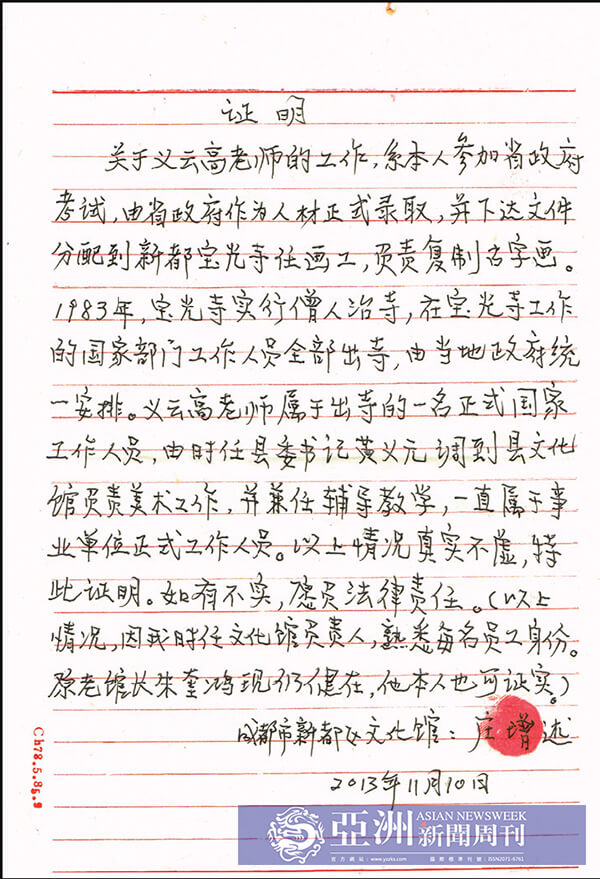 证明
关于义云高老师的工作，系本人参加省政府
考试，由省政府作为人材正式录取，并下达文件
分配到新都宝光寺任画工，负责复制古字画。
1983年，宝光寺实行僧人治寺，在宝光寺工作
的国家部门工作人员全部出寺，由当地政府统
一安排。义云高老师属于出寺的一名正式国家
工作人员，由时任县委书记黄义元调到县文化
馆负责美术工作，并兼任辅导教学，一直属于事
业单位正式工作人员。以上情况真实不虚，特
此证明。如有不实，愿负法律责任。（以上
情况，因我时任文化馆负责人，熟悉每名员工身份。
原老馆长朱奎鸿现仍健在，他本人也可证实。）
成都市新都区文化馆：庄增述
2013年11月10日
Ch78.5.85.9
亞洲 ASIAN NEWSWEEK 新聞周刊
官方網站：www.yzzks.com 國際標準刊號：ISSN2071-6761